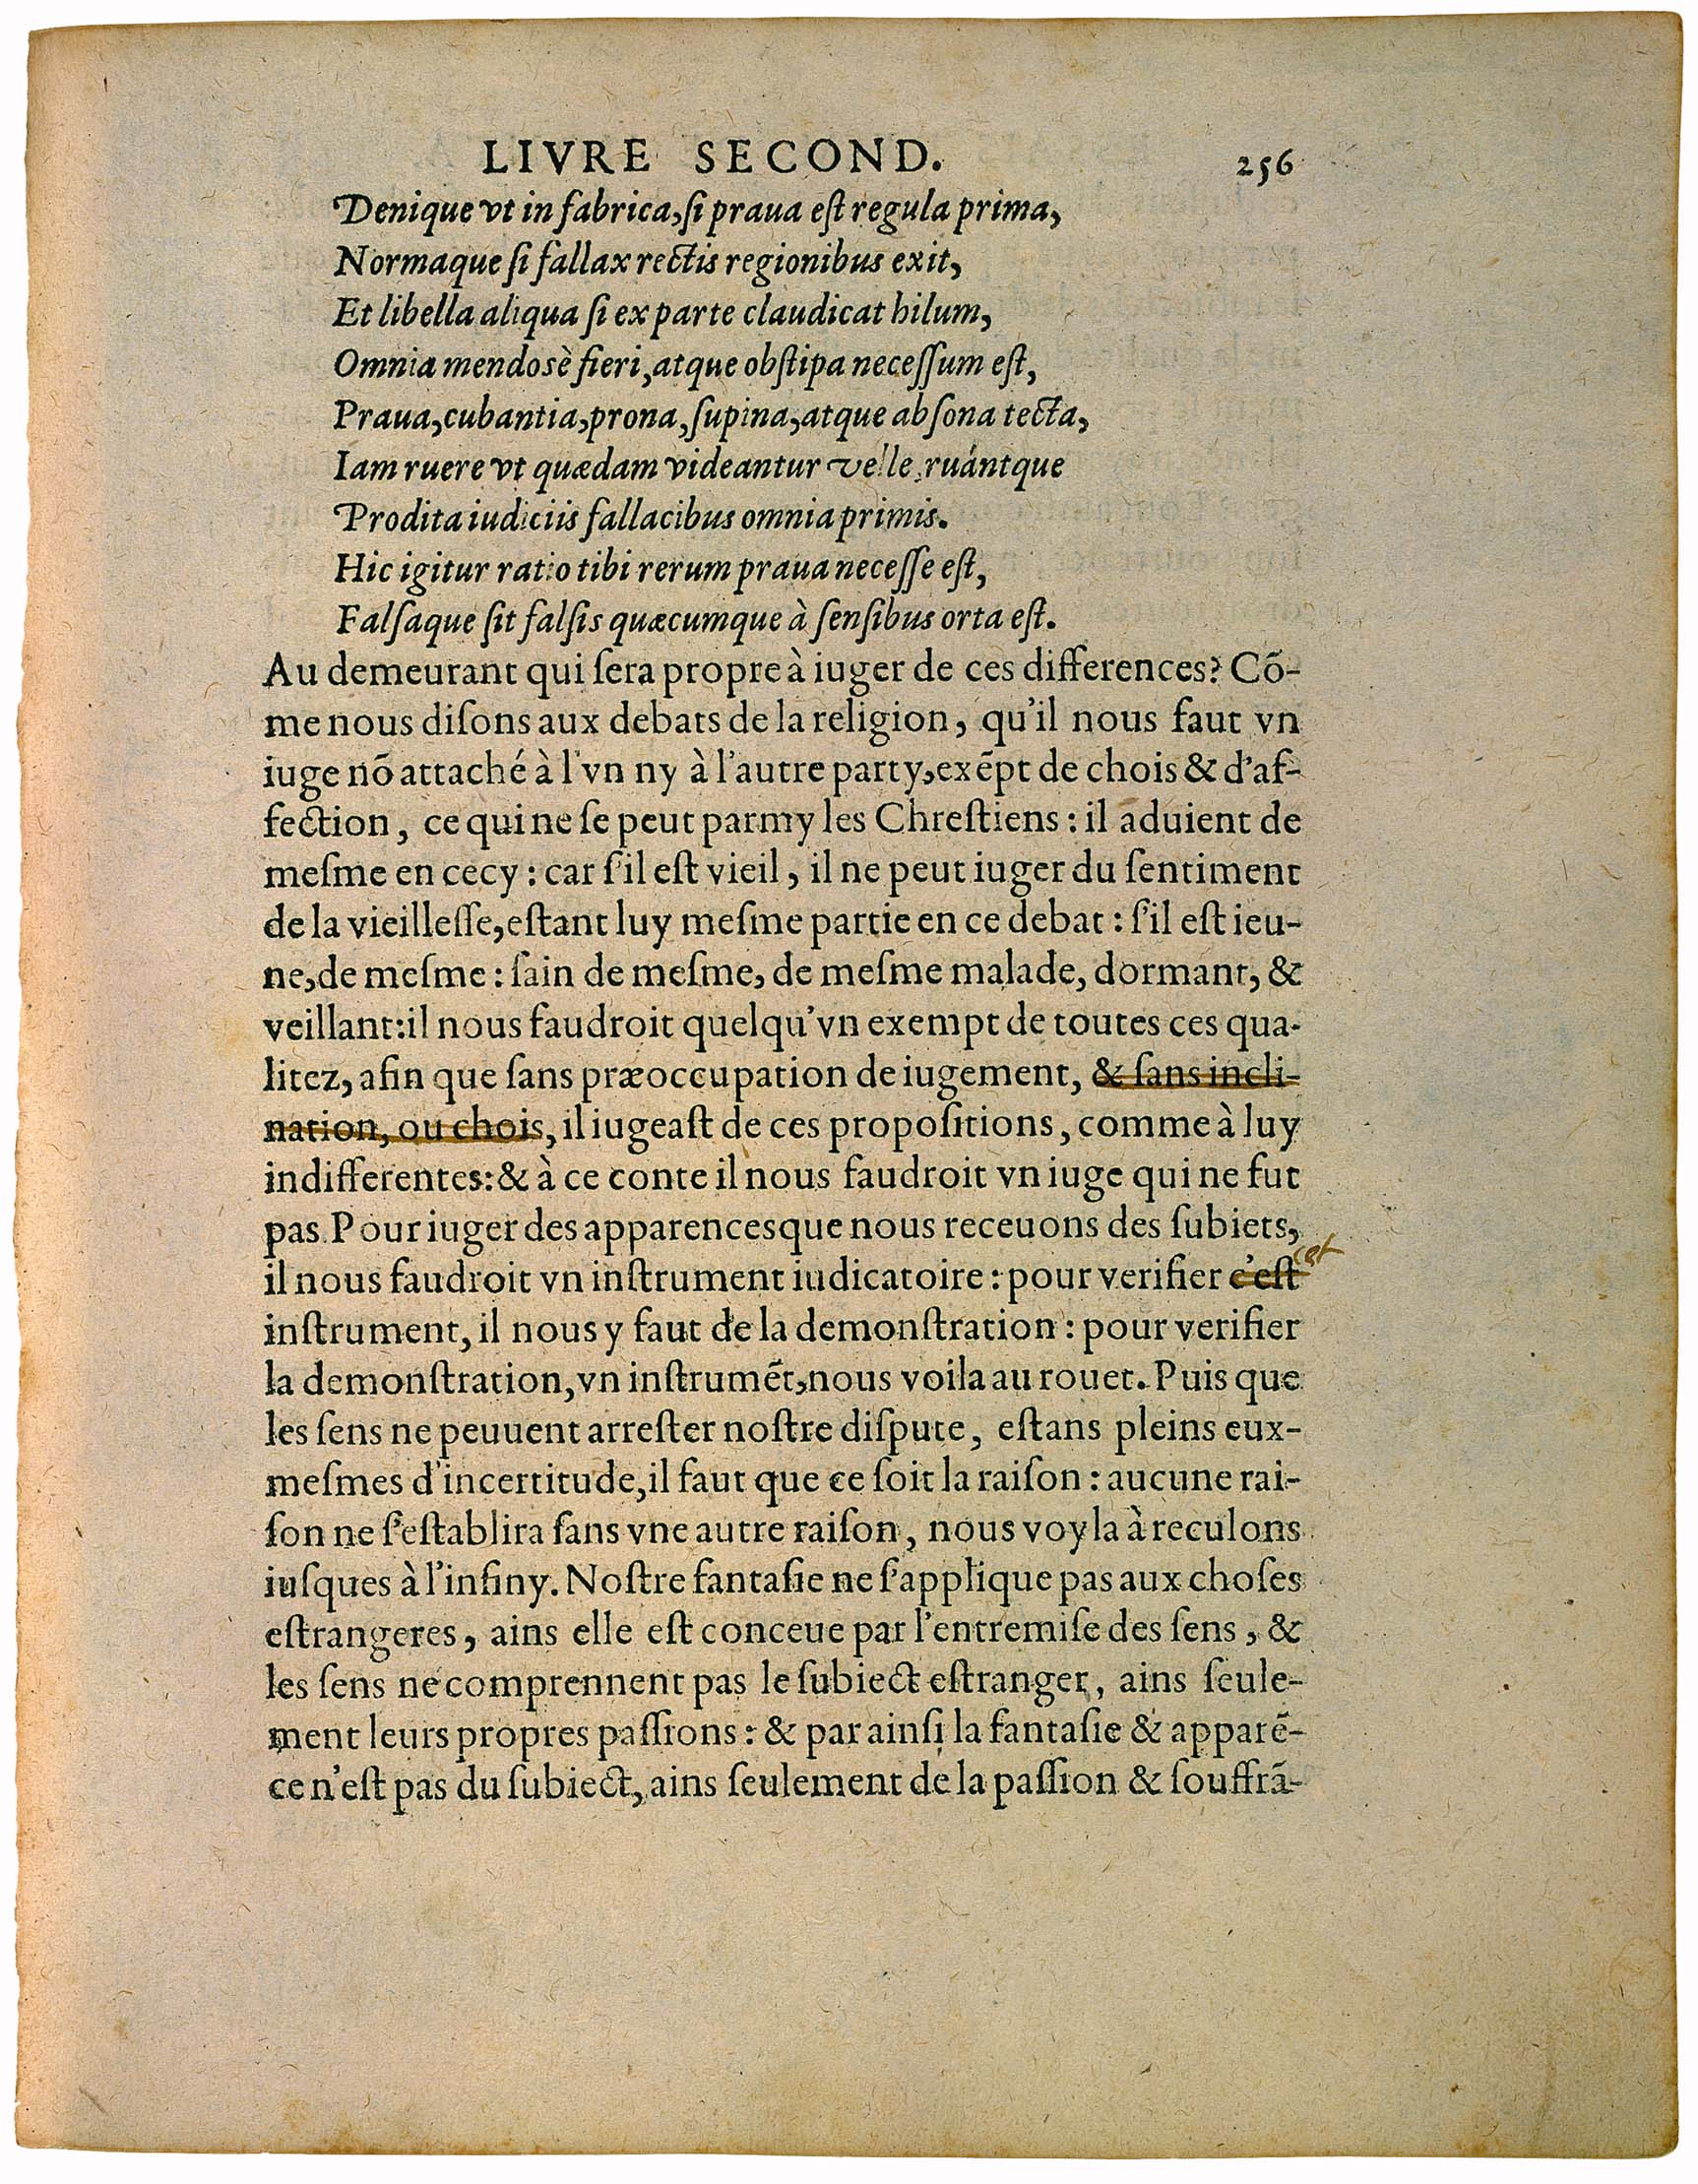 LIVRE SECOND. 256
Denique vt in fabrica, ſi praua eſt regula prima,
Normaque ſi fallax rectis regionibus exit,
Et libella aliqua ſi ex parte claudicat hilum,
Omnia mendosè fieri, atque obſtipa neceſſum eſt,
Praua, cubantia, prona, ſupina, atque abſona tecta,
Iam ruere vt quædam videantur velle, ruántque
Prodita iudiciis fallacibus omnia primis.
Hic igitur ratio tibi rerum praua neceſſe eſt,
Falſaque ſit falſis quæcumque à ſenſibus orta eſt.
Au demeurant qui ſera propre à iuger de ces differences? Cõ-
me nous diſons aux debats de la religion, qu'il nous faut vn
iuge nõ attaché à l'vn ny à l'autre party, exẽpt de chois & d'af-
fection, ce qui ne ſe peut parmy les Chreſtiens : il aduient de
meſme en cecy : car ſ'il eſt vieil, il ne peut iuger du ſentiment
de la vieilleſſe, eſtant luy meſme partie en ce debat : ſ'il eſt ieu-
ne, de meſme : ſain de meſme, de meſme malade, dormant, &
veillant: il nous faudroit quelqu'vn exempt de toutes ces qua-
litez, afin que ſans præoccupation de iugement, & ſans incli-
nation, ou chois, il iugeaſt de ces propoſitions, comme à luy
indifferentes: & à ce conte il nous faudroit vn iuge qui ne fut
pas. Pour iuger des apparences que nous receuons des ſubiets,
il nous faudroit vn inſtrument iudicatoire : pour verifier c'eſt cet
inſtrument, il nous y faut de la demonſtration : pour verifier
la demonſtration, vn inſtrumẽt, nous voila au rouet. Puis que
les ſens ne peuuent arreſter noſtre diſpute, eſtans pleins eux-
meſmes d'incertitude, il faut que ce ſoit la raiſon : aucune rai-
ſon ne ſ'eſtablira ſans vne autre raiſon, nous voyla à reculons
iuſques à l'infiny. Noſtre fantaſie ne ſ'applique pas aux choſes
eſtrangeres, ains elle eſt conceue par l'entremiſe des ſens, &
les ſens ne comprennent pas le ſubiect eſtranger, ains ſeule-
ment leurs propres paſſions : & par ainſi la fantaſie & apparẽ-
ce n'eſt pas du ſubiect, ains ſeulement de la paſſion & ſouffrã-